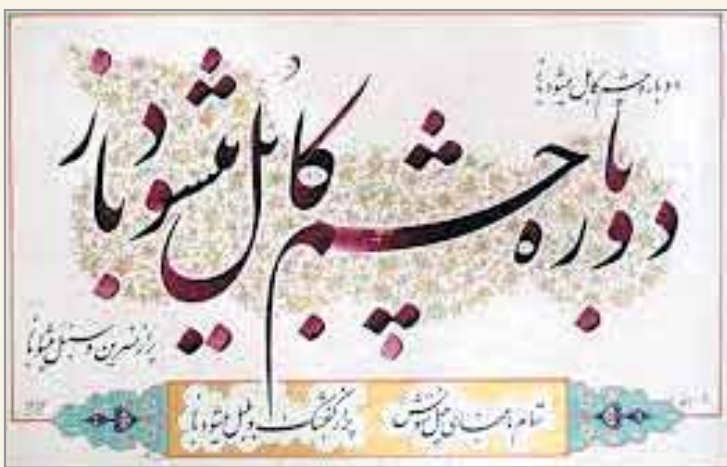 دوباره چشم کابل میشود باز
دوباره چشم کابل میشود باز
پر از نسرین و سنبل میشود باز
تمام باغهای
پر از گنجشک و بلبل میشود باز